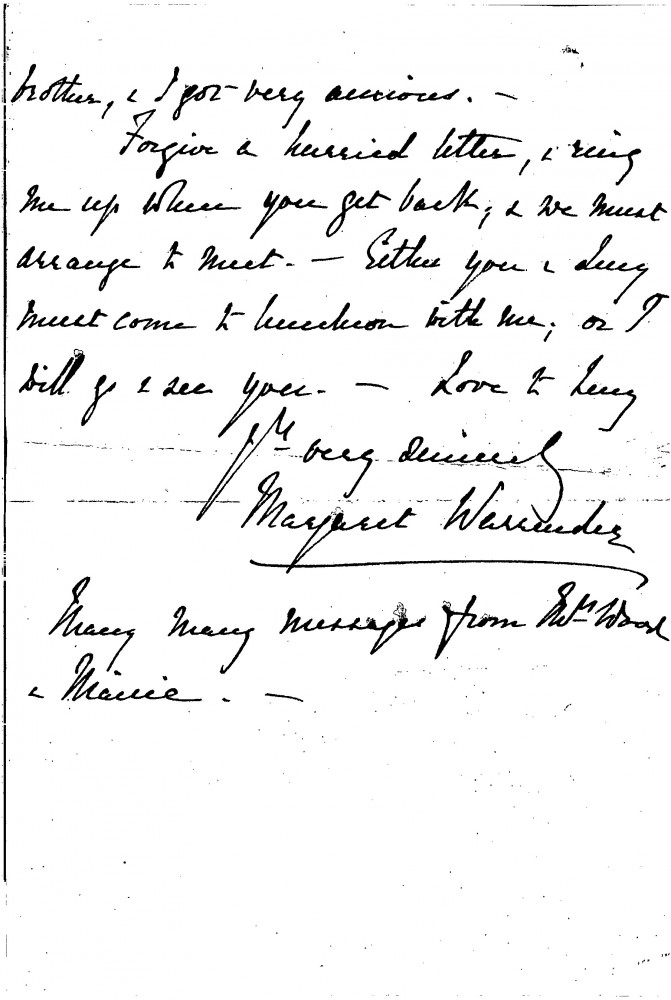 brother, & I got very anxious. —
Forgive a hurried letter, & ring
me up when you get back, & we must
arrange to meet. — Either you & Lucy
must come to luncheon with me, or I
will go & see you. — Love to Lucy
Yrs very sincerely
Margaret Warrender
Many many messages from Mrs Ward
& Maisie. —